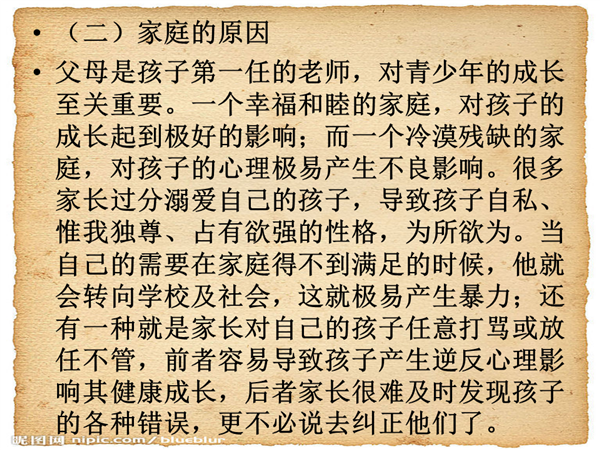 • （二）家庭的原因
• 父母是孩子第一任的老师，对青少年的成长
至关重要。一个幸福和睦的家庭，对孩子的
成长起到极好的影响；而一个冷漠残缺的家
庭，对孩子的心理极易产生不良影响。很多
家长过分溺爱自己的孩子，导致孩子自私、
惟我独尊、占有欲强的性格，为所欲为。当
自己的需要在家庭得不到满足的时候，他就
会转向学校及社会，这就极易产生暴力；还
有一种就是家长对自己的孩子任意打骂或放
任不管，前者容易导致孩子产生逆反心理影
响其健康成长，后者家长很难及时发现孩子
的各种错误，更不必说去纠正他们了。
昵图网 nipic.com/blueblur